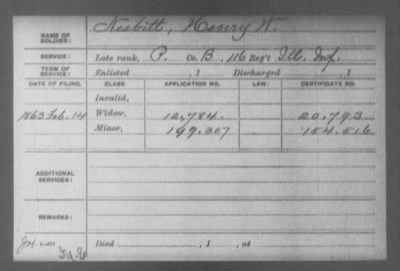 NAME OF SOLDIER: Nesbitt, Henry W.
SERVICE: Late rank, P. Co. B, 116 Reg't Ill. Inf.
TERM OF SERVICE: Enlisted , 1 Discharged , 1
DATE OF FILING. CLASS. APPLICATION NO. LAW. CERTIFICATE NO.
Invalid,
1863 Feb. 14 Widow, 12.784. 20.793
Minor, 169.307 154.516
ADDITIONAL SERVICES:
REMARKS:
Died , 1 , at